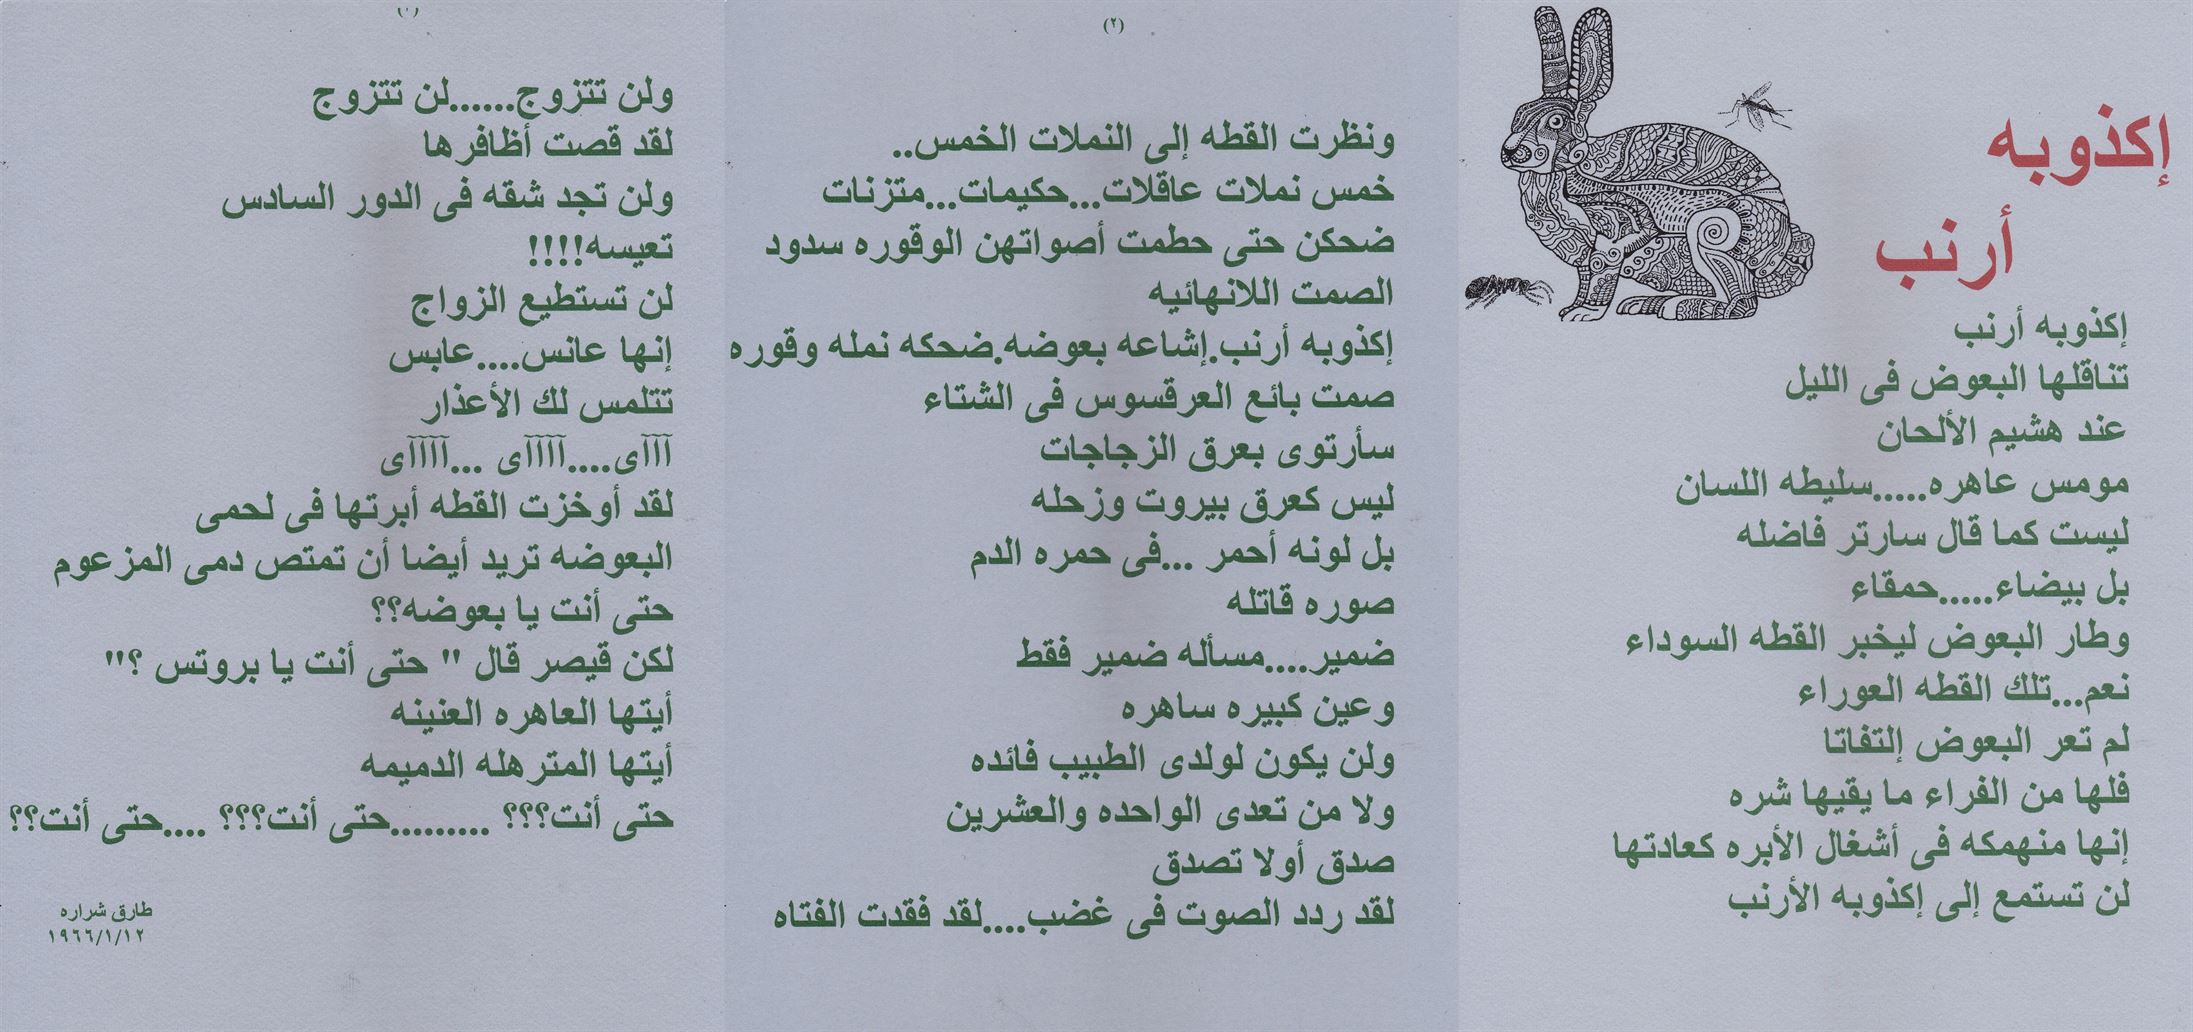 إكذوبه
أرنب
إكذوبه أرنب
تناقلها البعوض فى الليل
عند هشيم الألحان
مومس عاهره.....سليطه اللسان
ليست كما قال سارتر فاضله
بل بيضاء.....حمقاء
وطار البعوض ليخبر القطه السوداء
نعم...تلك القطه العوراء
لم تعر البعوض إلتفاتا
فلها من الفراء ما يقيها شره
إنها منهمكه فى أشغال الأبره كعادتها
لن تستمع إلى إكذوبه الأرنب
(٢)
ونظرت القطه إلى النملات الخمس..
خمس نملات عاقلات...حكيمات...متزنات
ضحكن حتى حطمت أصواتهن الوقوره سدود
الصمت اللانهائيه
إكذوبه أرنب.إشاعه بعوضه.ضحكه نمله وقوره
صمت بائع العرقسوس فى الشتاء
سأرتوى بعرق الزجاجات
ليس كعرق بيروت وزحله
بل لونه أحمر ...فى حمره الدم
صوره قاتله
ضمير....مسأله ضمير فقط
وعين كبيره ساهره
ولن يكون لولدى الطبيب فائده
ولا من تعدى الواحده والعشرين
صدق أولا تصدق
لقد ردد الصوت فى غضب....لقد فقدت الفتاه
ولن تتزوج......لن تتزوج
لقد قصت أظافرها
ولن تجد شقه فى الدور السادس
تعيسه!!!!
لن تستطيع الزواج
إنها عانس....عابس
تتلمس لك الأعذار
آآآى....آآآآى ...آآآآى
لقد أوخزت القطه أبرتها فى لحمى
البعوضه تريد أيضا أن تمتص دمى المزعوم
حتى أنت يا بعوضه؟؟
لكن قيصر قال " حتى أنت يا بروتس ؟"
أيتها العاهره العنينه
أيتها المترهله الدميمه
حتى أنت؟؟؟ .........حتى أنت؟؟؟ ....حتى أنت؟؟
طارق شراره
١٩٦٦/١/١٢